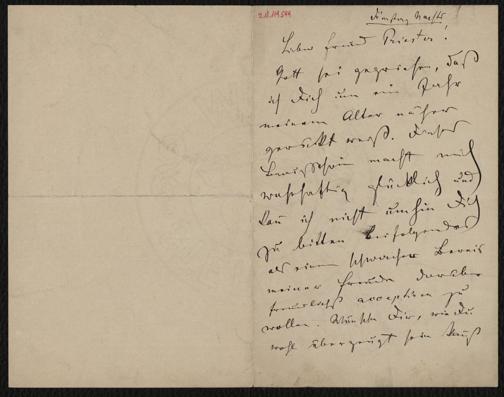 Dienstag Nachts
Lieber Freund Priester!
Gott sei gepriesen, daß
ich Dich um ein Jahr
meinem Alter näher
gerückt weiß. Dieses
Bewußtsein macht mich
wahrhaftig glücklich und
kann ich nicht umhin Dich
zu bitten beifolgendes
als einen schwachen Beweis
meiner Freude darüber
freundlichst acceptiren zu
wollen. Wünsche Dir, wie Du
wohl überzeugt sein mußt